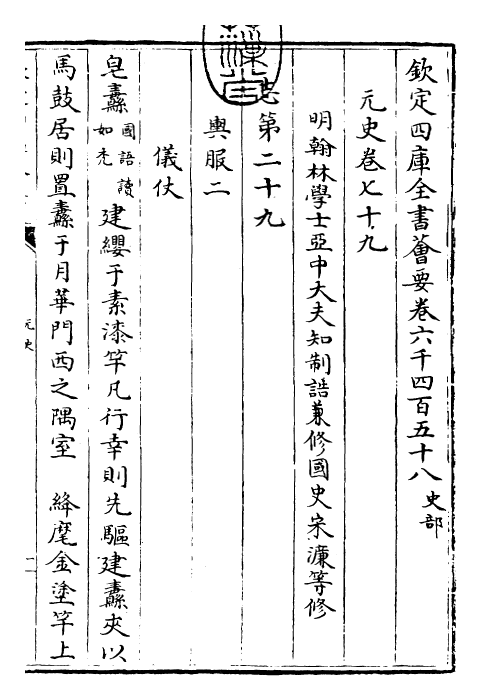 欽定四庫全書薈要卷六千四百五十八 史部
元史卷七十九
明翰林學士亞中大夫知制誥兼修國史宋濂等修
志第二十九
輿服二
儀仗
皂纛 國語讀如禿 建纓于素漆竿凡行幸則先驅建纛夾以
馬鼓居則置纛于月華門西之隅室 絳麾金塗竿上
元史